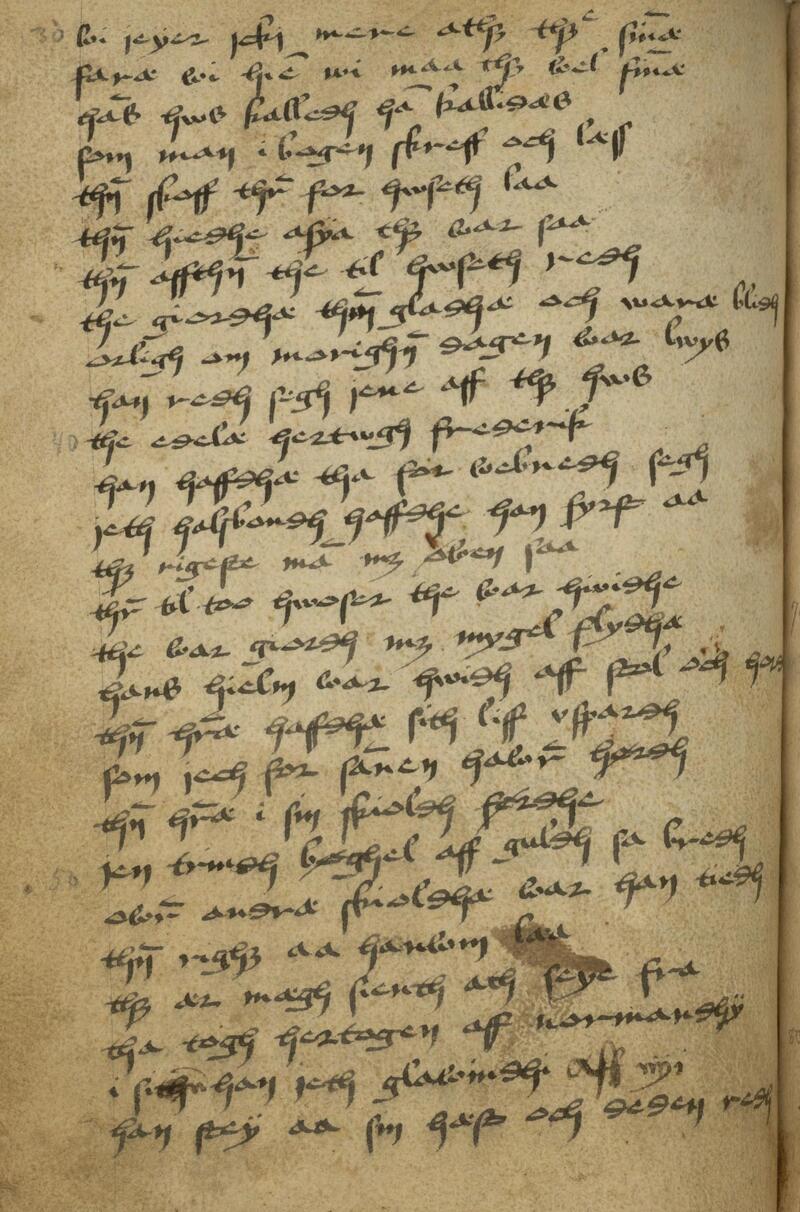 wi jeyer jckj mere athʒ thʒᵉ sin̄æ
faræ wi hiē wi maa thʒ wel fin̄æ
hās hws kalledh hā kallidæs
som man i bogen skreff och læss
thn̄ skoff thr̄ for hwseth laa
thn̄ hiedhe asya thʒ war saa
thn̄ affthn̄ the til hwseth redh
the giordhæ thm̄ gladhæ och waræ blidh
orligh om morighn̄ dagen war lwys
han redh segh jene aff thʒ hws
40 the edelæ hertwgh frederik
han haffdhæ tha for webnedh segh
jeth halsbondh haffdhe han fyrst aa
thʒ rigeste mā mʒ owen saa
thr̄ til too hwoser the war hwidhe
the war giordh mʒ mygel flydhæ
hans hielm war hwidh aff stol och
thn̄ hr̄æ haffdhæ sith liff vspardh
som jech for san̄en hawr̄ hørdh
thn̄ hr̄æ i sin skioldh førdhe
50 jen trindh bøghel aff guldh sa bredh
owr̄ andræ skioldhæ war han tiedh
thn̄ righʒ aa hanwom laa
thʒ ær mægh sienth ath seye fra
tha togh hertogen aff normandhÿ
i sith han jeth glawindhi Aff nyi
han stey aa sin hæst och deden redh